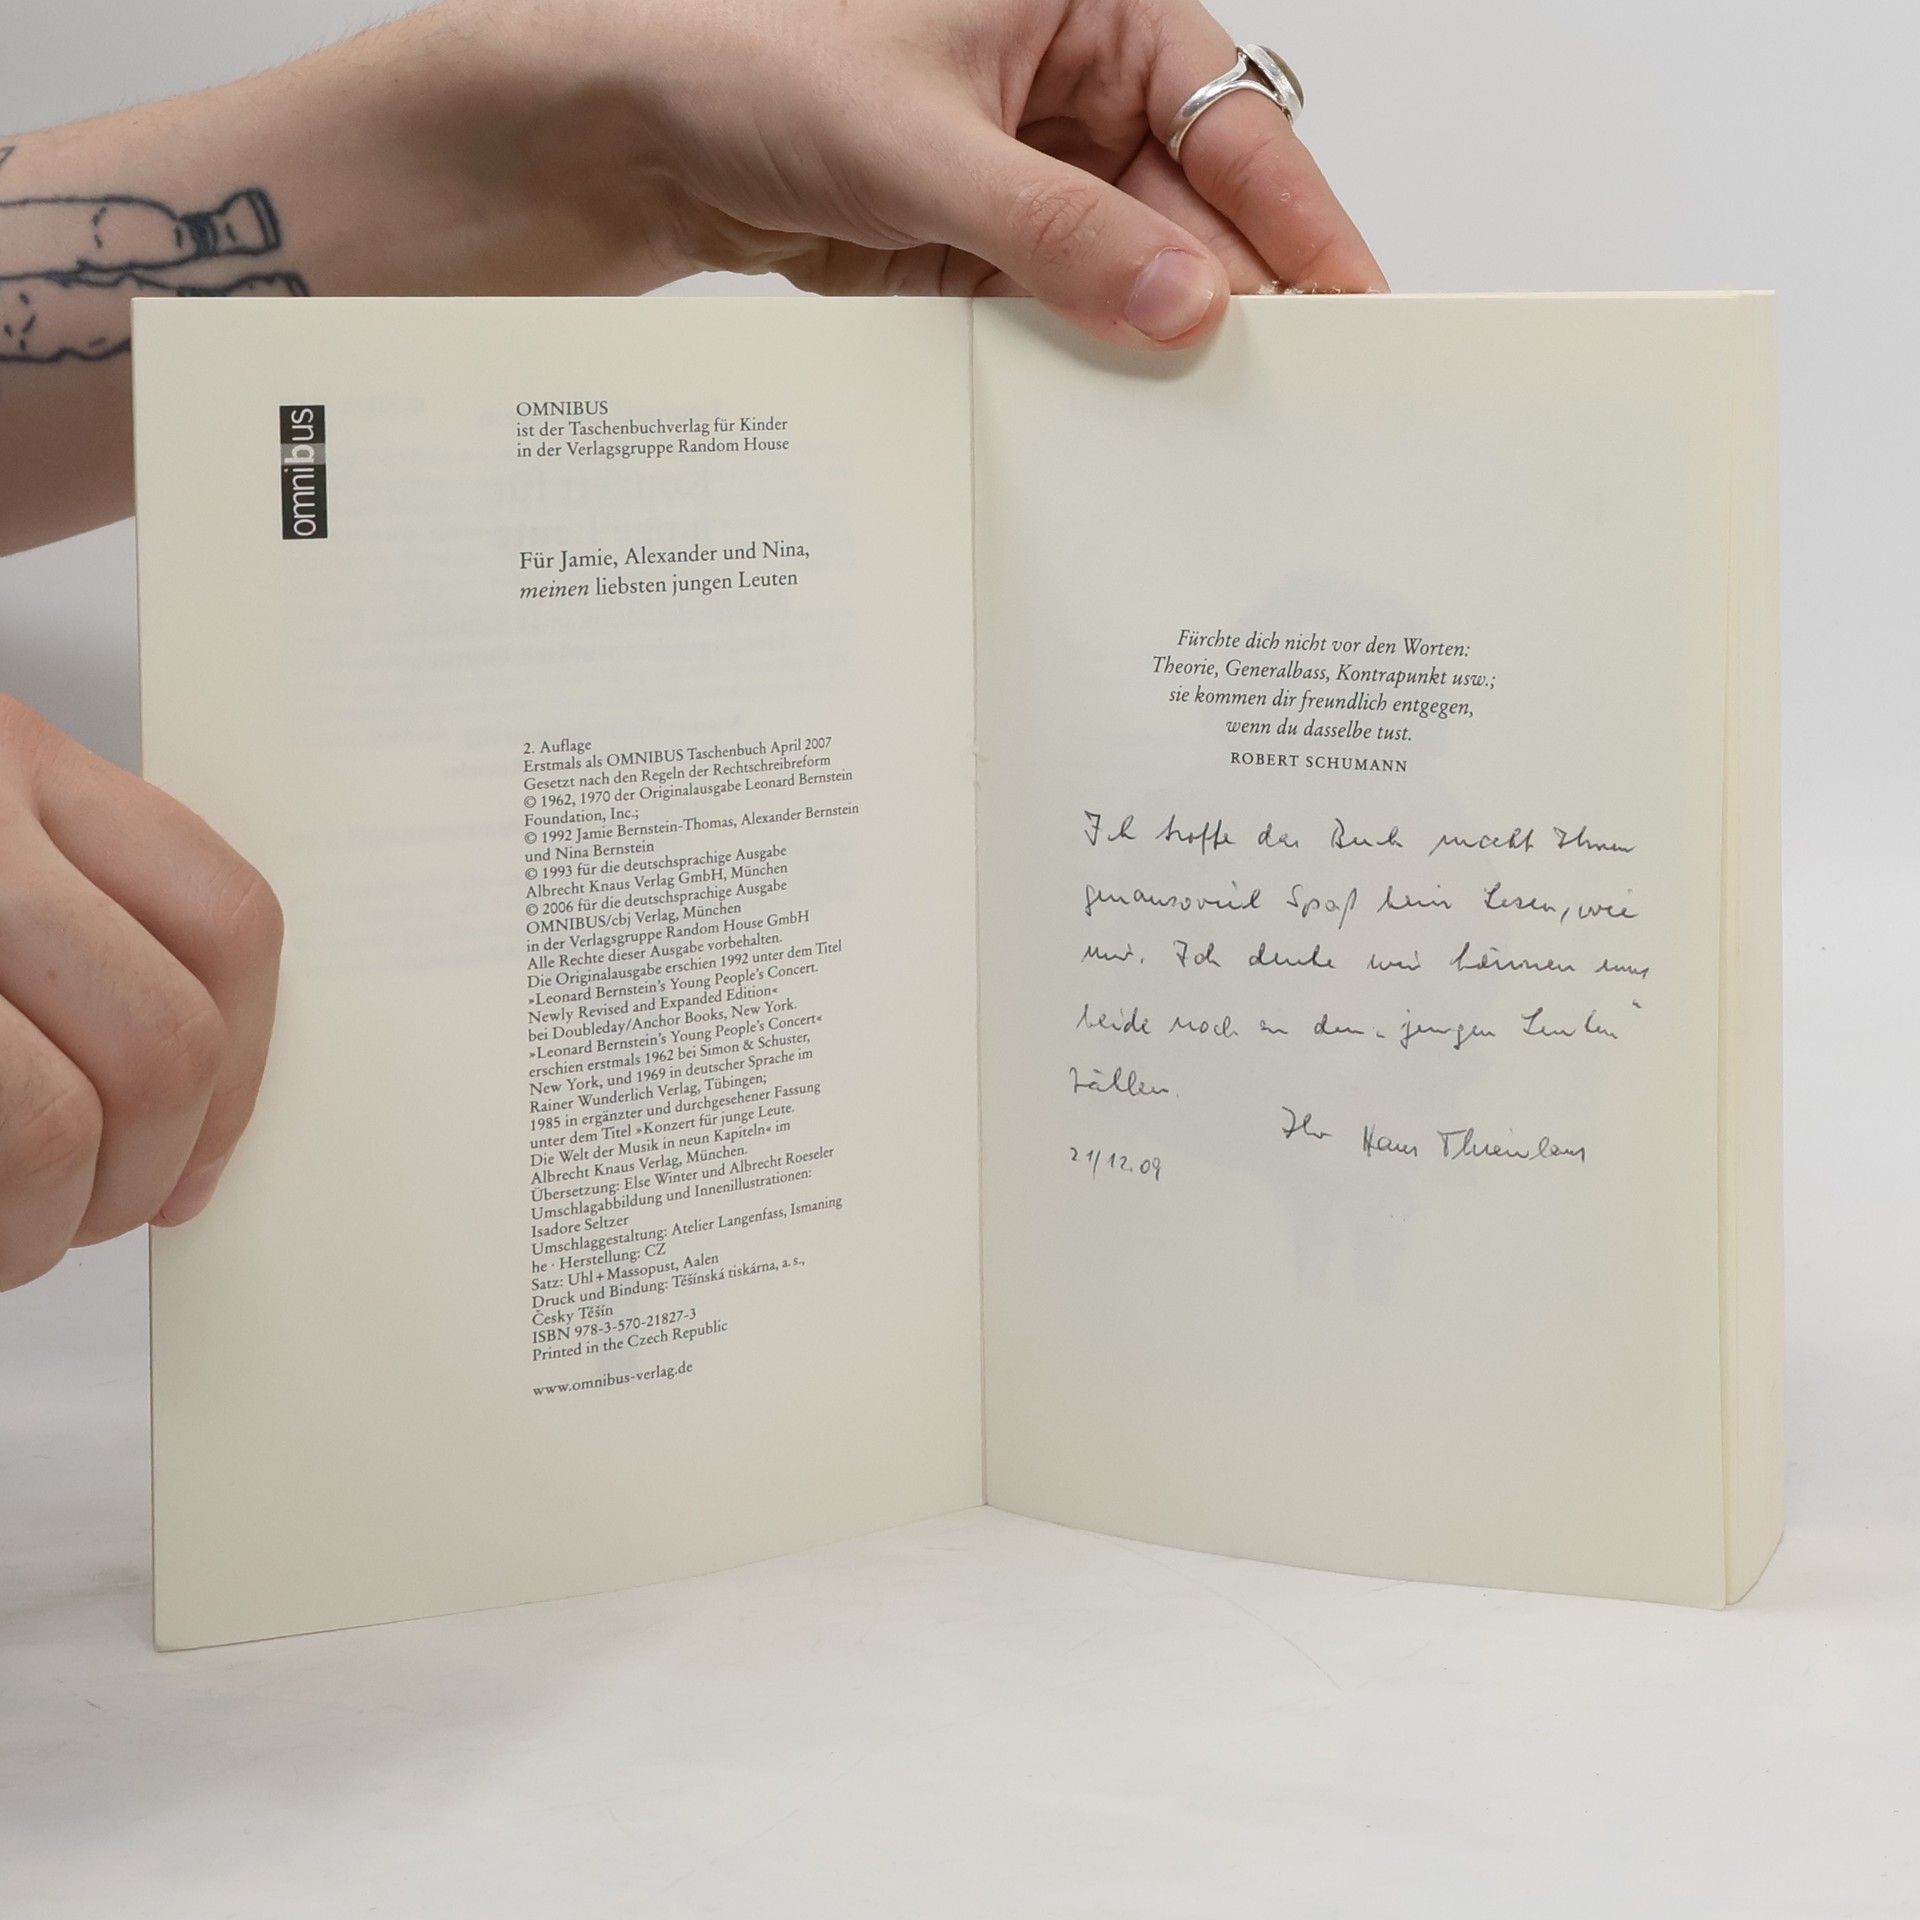 omnibus
OMNIBUS
ist der Taschenbuchverlag für Kinder
in der Verlagsgruppe Random House
Für Jamie, Alexander und Nina,
meinen liebsten jungen Leuten
2. Auflage
Erstmals als OMNIBUS Taschenbuch April 2007
Gesetzt nach den Regeln der Rechtschreibreform
© 1962, 1970 der Originalausgabe Leonard Bernstein
Foundation, Inc.;
© 1992 Jamie Bernstein-Thomas, Alexander Bernstein
und Nina Bernstein
© 1993 für die deutschsprachige Ausgabe
Albrecht Knaus Verlag GmbH, München
© 2006 für die deutschsprachige Ausgabe
OMNIBUS/cbj Verlag, München
in der Verlagsgruppe Random House GmbH
Alle Rechte dieser Ausgabe vorbehalten.
Die Originalausgabe erschien 1992 unter dem Titel
»Leonard Bernstein's Young People's Concert.
Newly Revised and Expanded Edition«
bei Doubleday/Anchor Books, New York.
»Leonard Bernstein's Young People's Concert«
erschien erstmals 1962 bei Simon & Schuster,
New York, und 1969 in deutscher Sprache im
Rainer Wunderlich Verlag, Tübingen;
1985 in ergänzter und durchgesehener Fassung
unter dem Titel »Konzert für junge Leute.
Die Welt der Musik in neun Kapiteln« im
Albrecht Knaus Verlag, München.
Übersetzung: Else Winter und Albrecht Roeseler
Umschlagabbildung und Innenillustrationen:
Isadore Seltzer
Umschlaggestaltung: Atelier Langenfass, Ismaning
he · Herstellung: CZ
Satz: Uhl + Massopust, Aalen
Druck und Bindung: Těšínská tiskárna, a. s.,
Česky Těšín
ISBN 978-3-570-21827-3
Printed in the Czech Republic
www.omnibus-verlag.de
Fürchte dich nicht vor den Worten:
Theorie, Generalbass, Kontrapunkt usw.;
sie kommen dir freundlich entgegen,
wenn du dasselbe tust.
ROBERT SCHUMANN
Ich hoffe das Buch macht Ihnen
genausoviel Spaß beim Lesen, wie
mir. Ich denke wir können uns
beide noch zu den „jungen Leuten“
zählen.
Ihr Hans
21/12.09